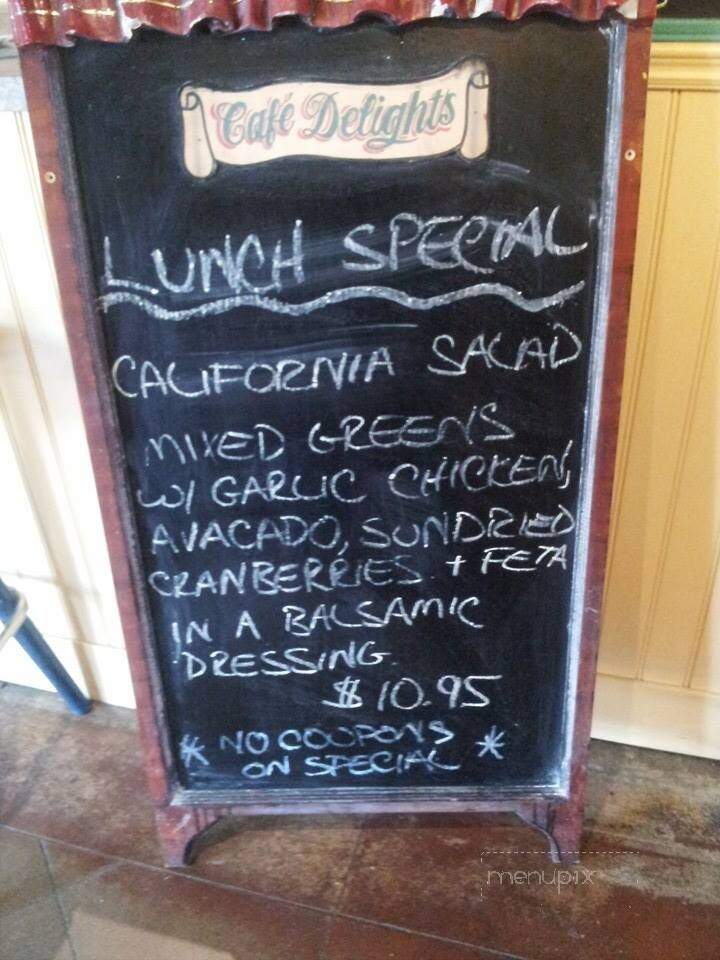 Café Delights
LUNCH SPECIAL
CALIFORNIA SALAD
MIXED GREENS
W/ GARLIC CHICKEN,
AVACADO, SUNDRIED
CRANBERRIES + FETA
IN A BALSAMIC
DRESSING.
$10.95
* NO COUPONS *
ON SPECIAL
menupix